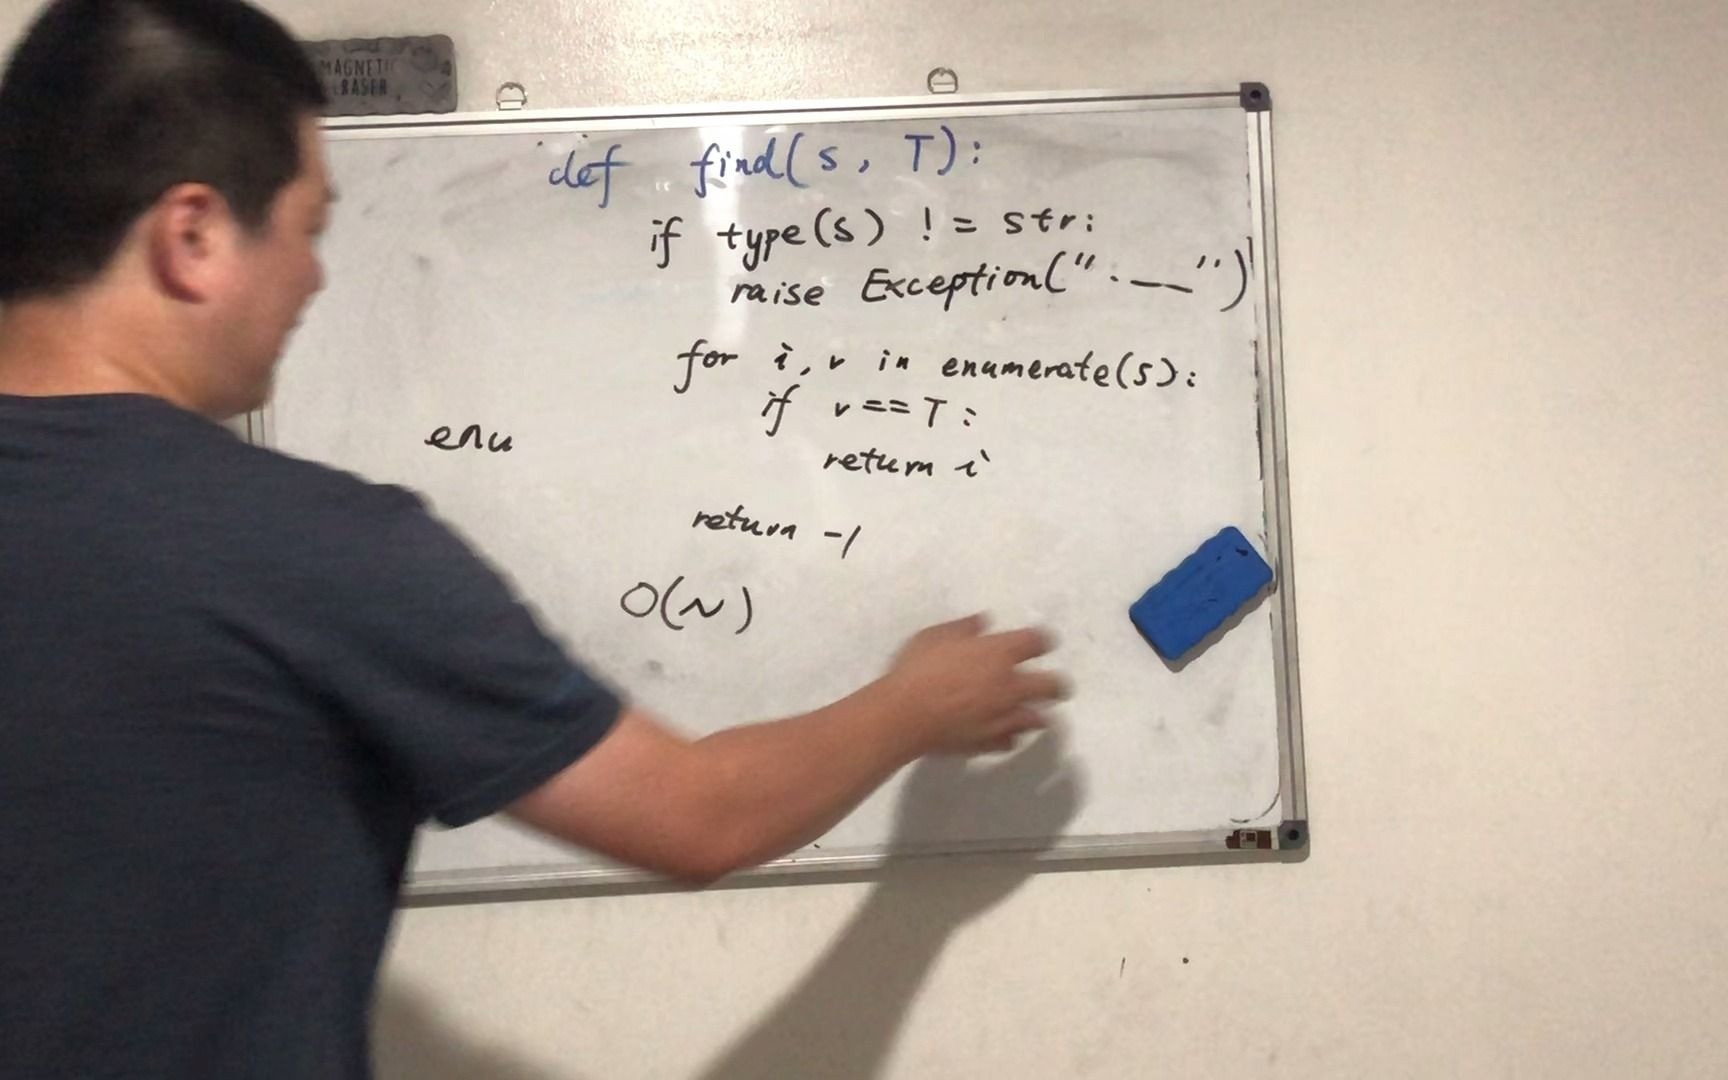 MAGNETIC
ERASER
def find(s, T):
if type(s) != str:
raise Exception(". __")
for i, v in enumerate(s):
if v == T:
enu
return i
return -1
O(N)